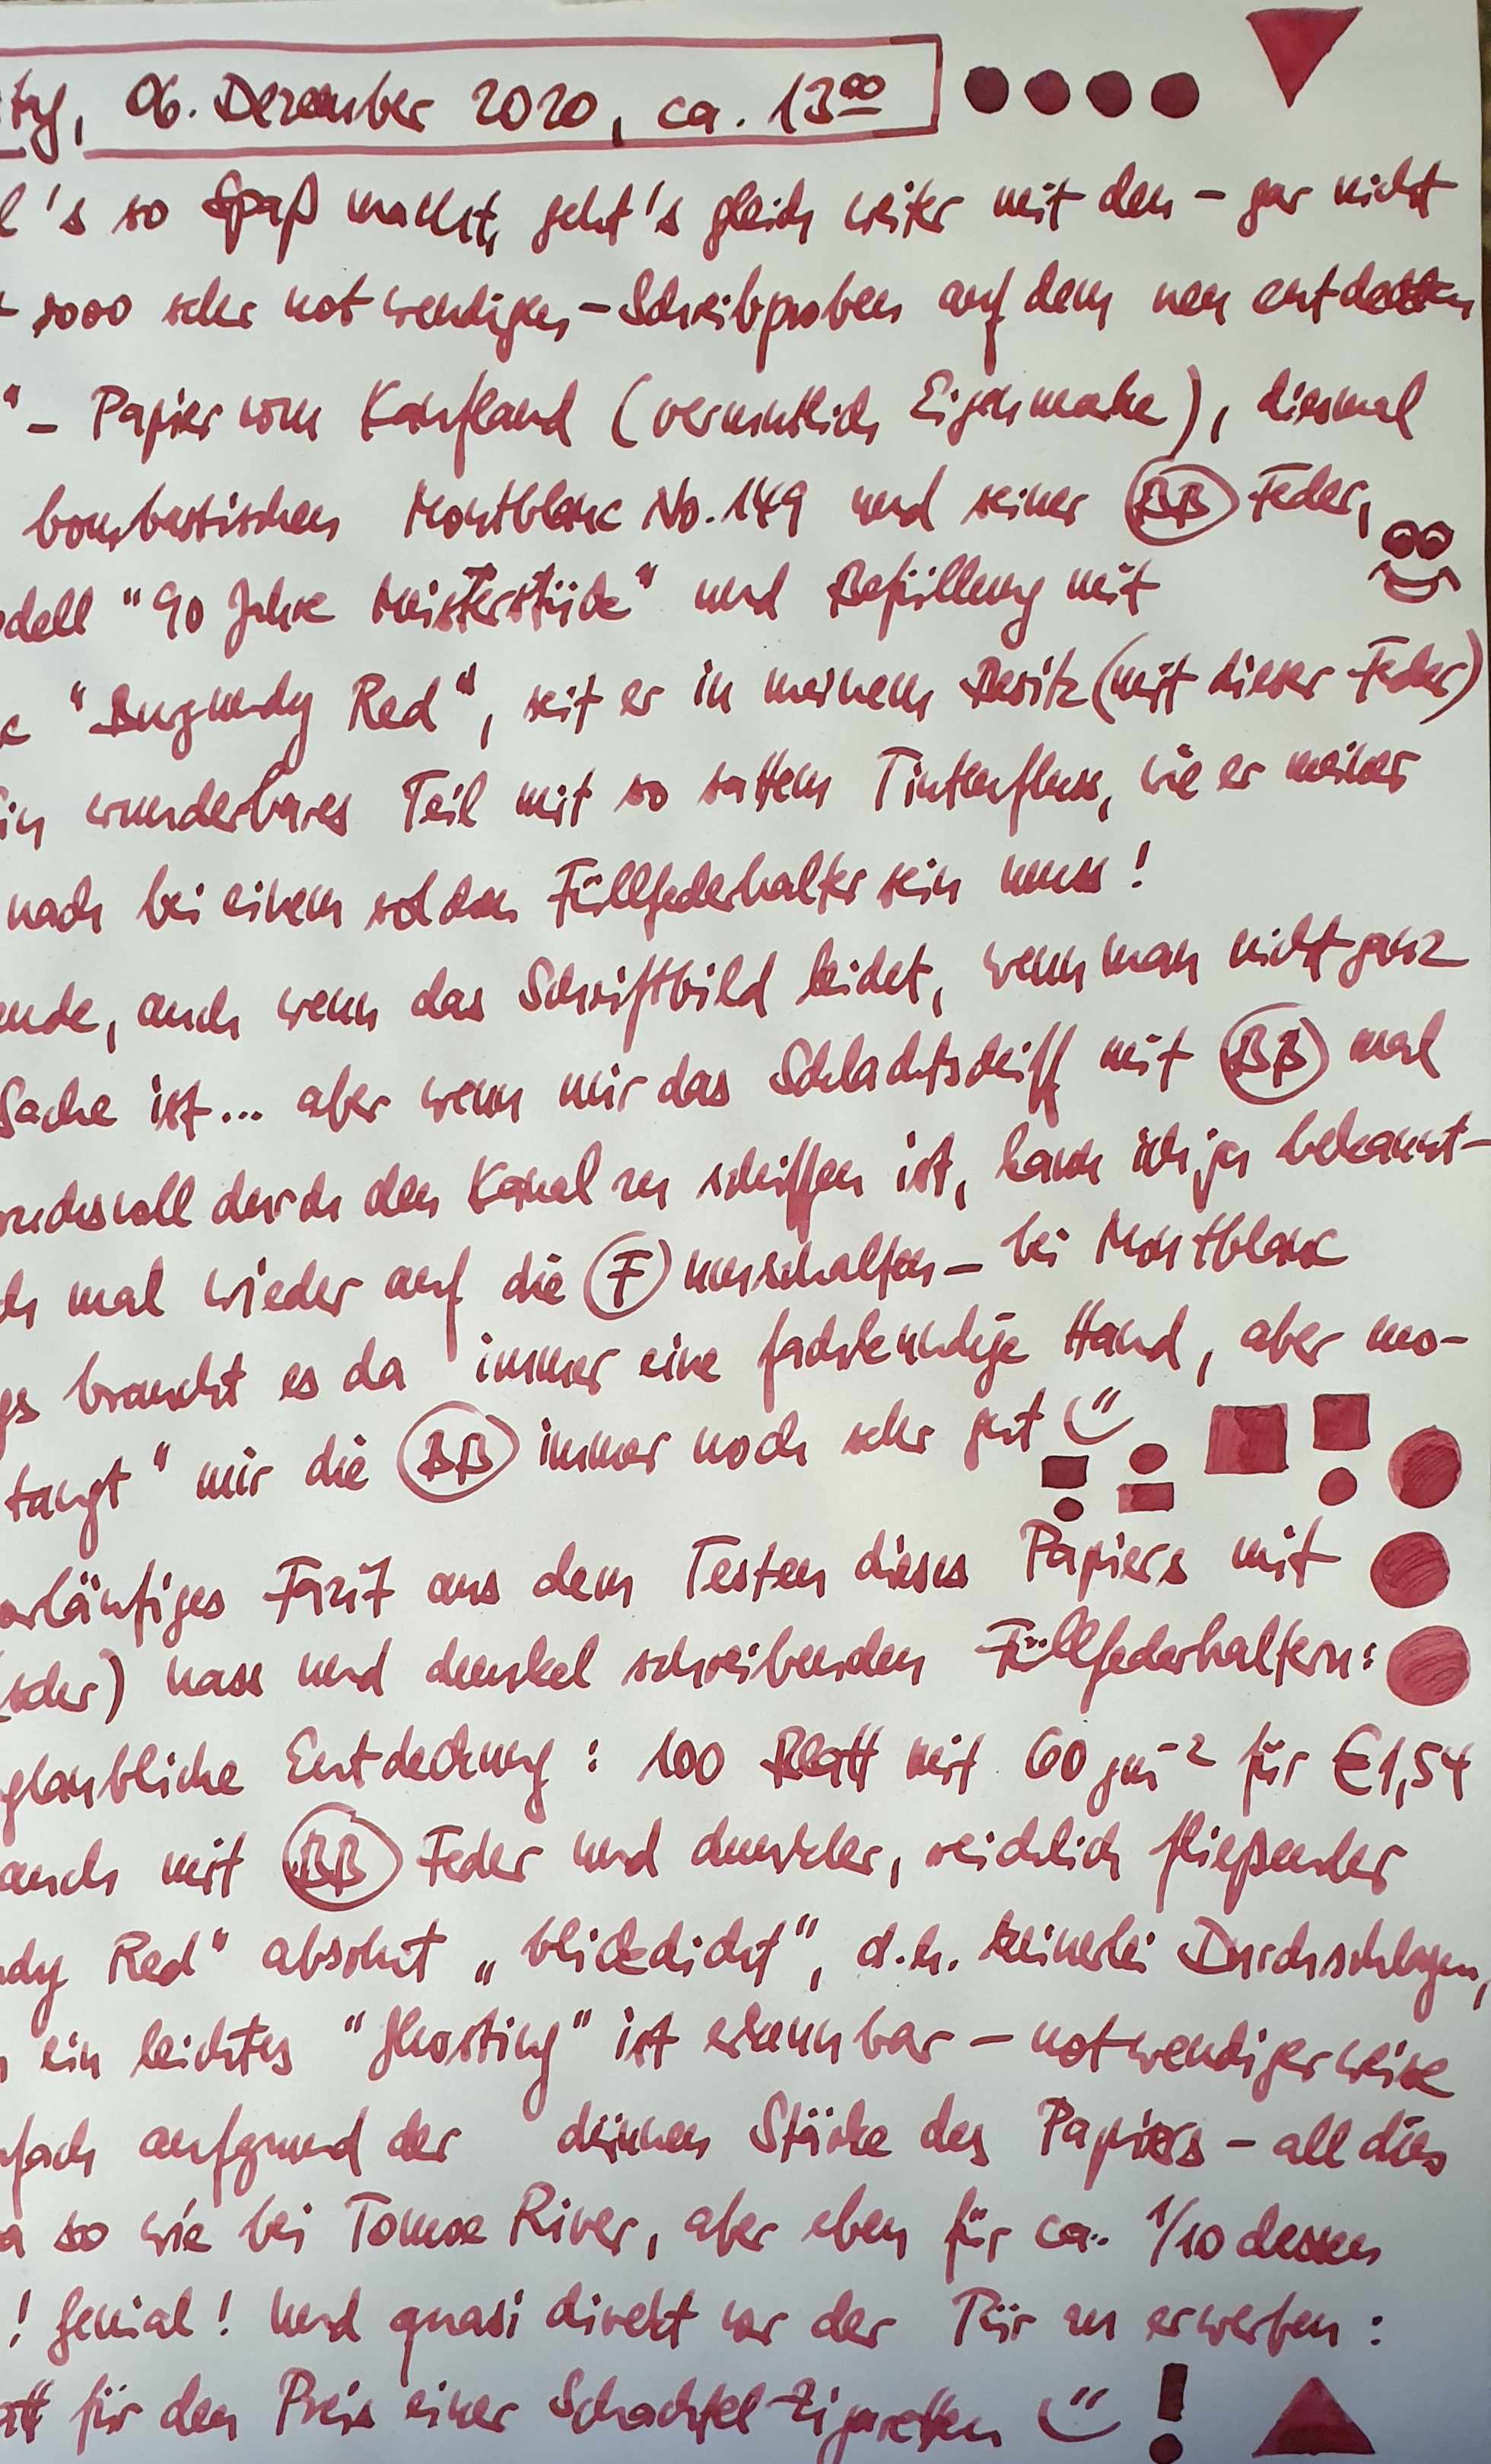 06. Dezember 2020, ca. 13⁰⁰
's so Spaß macht, geht's gleich weiter mit den – gar nicht
sooo sehr notwendigen – Schreibproben auf dem neu entdeckten
" – Papier vom Kaufland (vermutlich Eigenmarke), diesmal
bombastischen Montblanc No. 149 und seiner BB Feder,
dell "90 Jahre Meisterstück" und Befüllung mit
c "Burgundy Red", seit er in meinem Besitz (mit dieser Feder)
in wunderbares Teil mit so sattem Tintenfluss, wie er meiner
nach bei einem solchen Füllfederhalter sein muss!
ende, auch wenn das Schriftbild leidet, wenn man nicht ganz
Sache ist... aber wenn mir das Schlachtschiff mit BB mal
ruchsvoll durch den Kanal zu schiffen ist, kann ich ja bekannt-
ch mal wieder auf die F umschalten – bei Montblanc
gs braucht es da immer eine fachkundige Hand, aber mo-
taugt" mir die BB immer noch sehr gut
orläufiges Fazit aus dem Testen dieses Papiers mit
(sehr) nass und dunkel schreibenden Füllfederhaltern:
glaubliche Entdeckung: 100 Blatt mit 60 gm⁻² für €1,54
auch mit BB Feder und dunkler, reichlich fließender
dy Red" absolut „blickdicht", d.h. keinerlei Durchschlagen,
ein leichtes "Ghosting" ist erkennbar – notwendigerweise
nfach aufgrund der dünnen Stärke des Papiers – all dies
a so wie bei Tomoe River, aber eben für ca. 1/10 dessen
! Genial! Und quasi direkt vor der Tür zu erwerben:
att für den Preis einer Schachtel Zigaretten !